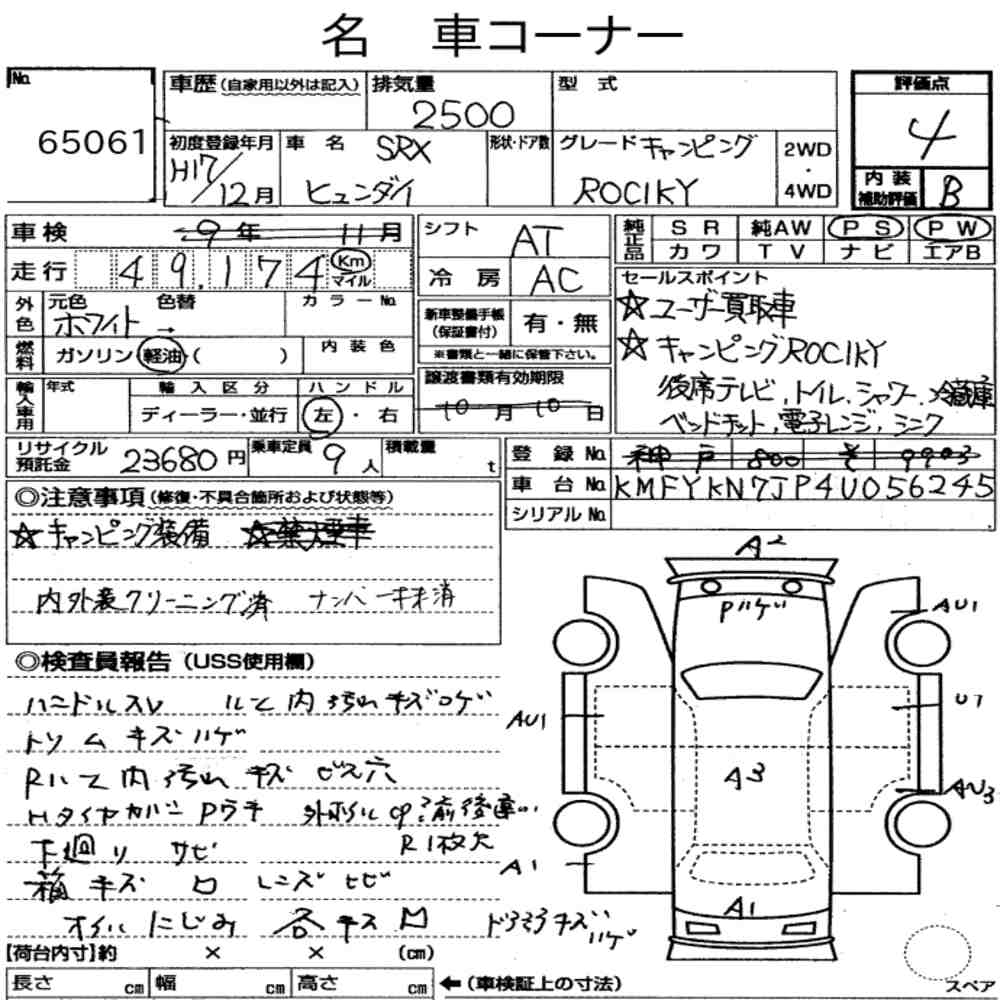 名 車コーナー
No. 65061
車歴 (自家用以外は記入) 排気量 2500 型 式
評価点 4
初度登録年月 H17/12月 車 名 SRX ヒュンダイ 形状・ドア数 グレード キャンピング ROCIKY 2WD・4WD
内装補助評価 B
車検 9年 11月 シフト AT 純正品 SR 純AW PS PW
カワ TV ナビ エアB
走行 49,174 Km マイル 冷房 AC
セールスポイント
外色 元色 ホワイト → 色替 カラーNo.
新車整備手帳 (保証書付) 有・無
※書類と一緒に保管下さい。
☆ユーザー買取車
燃料 ガソリン 軽油 ( ) 内装色
☆キャンピングROCIKY
輸入車用 年式 輸入区分 ハンドル
ディーラー・並行 左・右
譲渡書類有効期限
10月10日
後席テレビ、トイレ、シャワー、冷蔵庫
ベッドキット、電子レンジ、シンク
リサイクル預託金 23680円 乗車定員 9人 積載量 t
登録No. 神戸 800 そ 9903
車台No. KMFYKN7JP4U056245
シリアルNo.
◎注意事項 (修復・不具合箇所および状態等)
☆キャンピング装備
内外装クリーニング済 ナンバー抹消
◎検査員報告 (USS使用欄)
ハンドルスレ ルーフ内汚れキズコゲ
トリムキズハゲ
Rルーフ内汚れ キズ ビス穴
外ホイルCP 前後違い
下廻り サビ R1枚欠
箱キズ ロ レンズヒビ
オイルにじみ 各キズ凹
A2
Pハゲ
AU1
U7
AU1
A3
AU3
A1
A1
[荷台内寸]約 × × (cm)
長さ cm 幅 cm 高さ cm ←(車検証上の寸法)
スペア